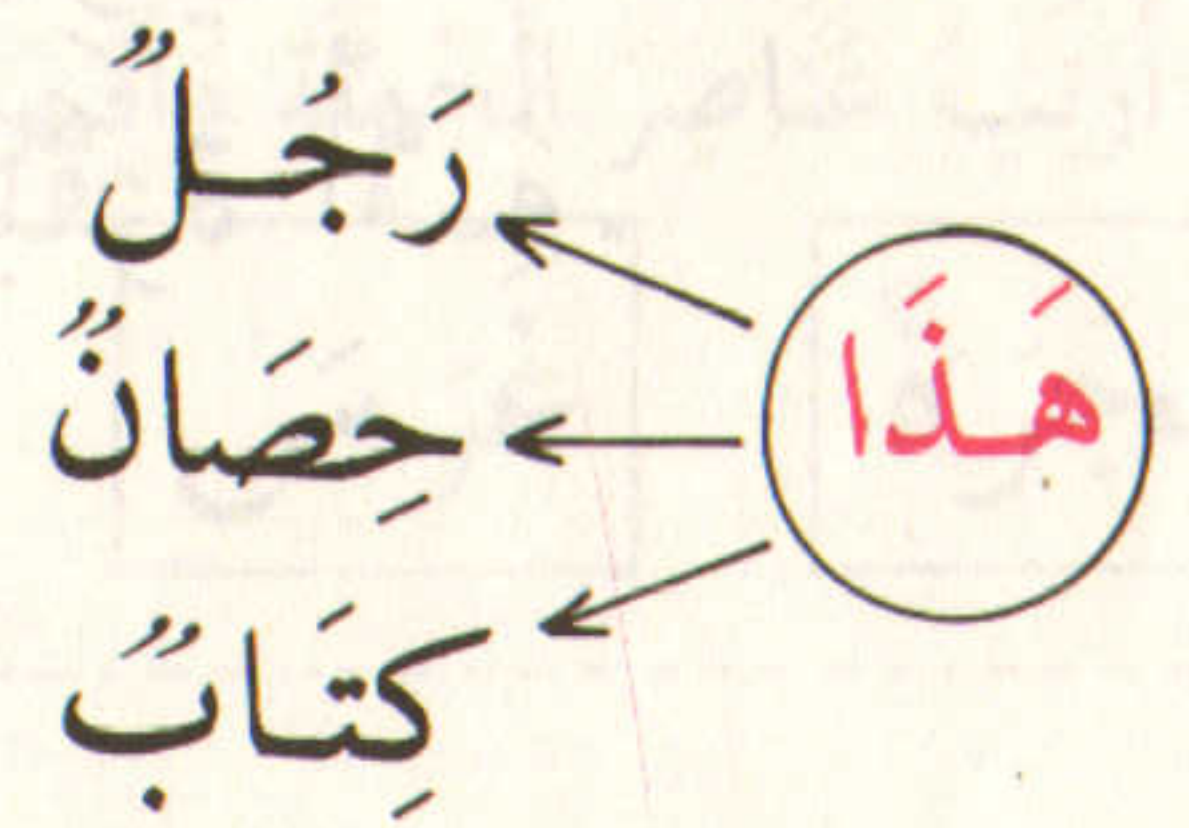 هَذَا
رَجُلٌ
حِصَانٌ
كِتَابٌ